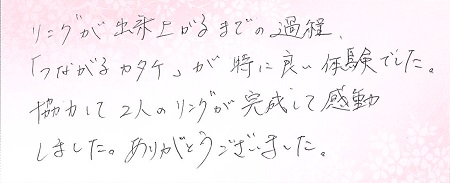 リングが出来上がるまでの過程、
「つながるカタチ」が特に良い体験でした。
協力して2人のリングが完成して感動
しました。ありがとうございました。